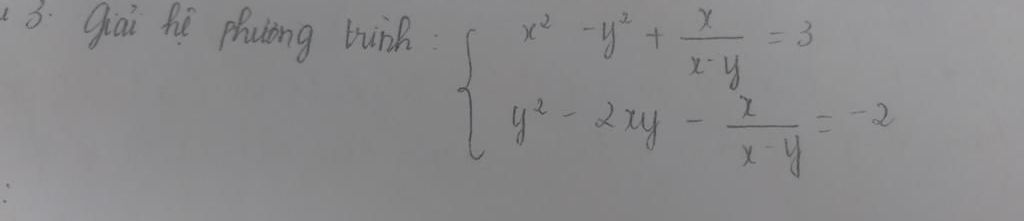 3. Giải hệ phương trình : { x² - y² + x/(x-y) = 3
y² - 2xy - x/(x-y) = -2